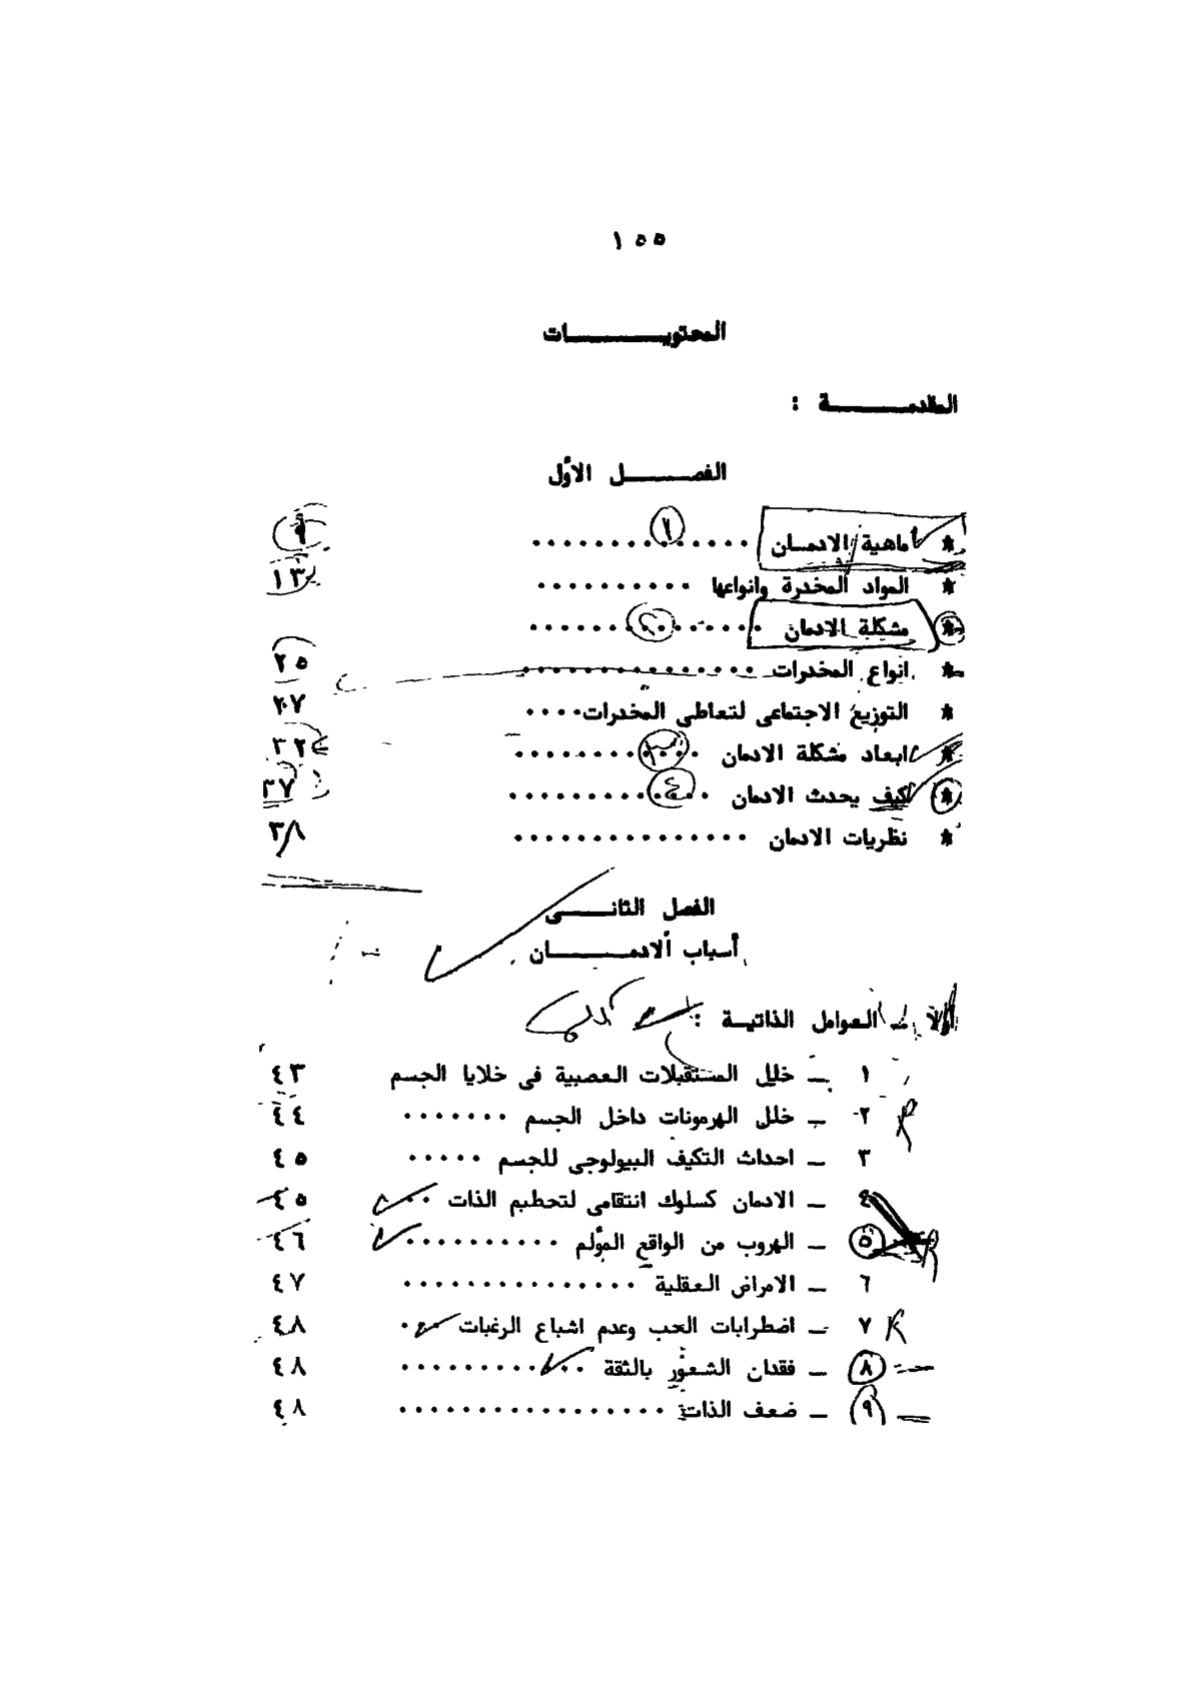 ١٥٥
المحتويـــات
المقدمـــة :
الفصــل الأول
* ماهية الادمــان .............. ٩
* المواد المخدرة وانواعها .......... ١٣
* مشكلة الادمان ..............
* انواع المخدرات .............. ٢٥
* التوزيع الاجتماعى لتعاطى المخدرات.... ٢٧
* ابعاد مشكلة الادمان ............ ٣٢
* كيف يحدث الادمان ............ ٣٧
* نظريات الادمان ............... ٣٨
الفصل الثانــى
أسباب الادمـــان
العوامل الذاتيـة :
١ ــ خلل المستقبلات العصبية فى خلايا الجسم ٤٣
٢ ــ خلل الهرمونات داخل الجسم ....... ٤٤
٣ ــ احداث التكيف البيولوجى للجسم ..... ٤٥
٤ ــ الادمان كسلوك انتقامى لتحطيم الذات .... ٤٥
٥ ــ الهروب من الواقع المؤلم .......... ٤٦
٦ ــ الامراض العقلية ............... ٤٧
٧ ــ اضطرابات الحب وعدم اشباع الرغبات ... ٤٨
٨ ــ فقدان الشعور بالثقة ............ ٤٨
٩ ــ ضعف الذات ................. ٤٨